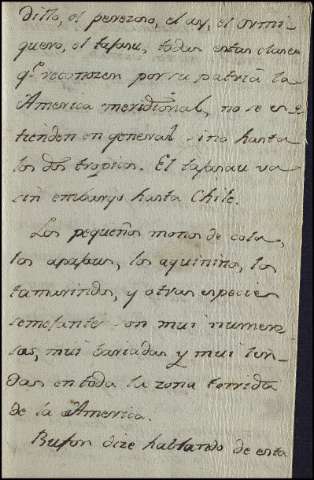 dillo, el perezoso, el ay, el ormi
guero, el tafanu, todas estas clases
q.e reconozen por su patria la
America meridional, no se es
tienden en general sino hasta
los dos tropicos. El tafanau va
sin embargo hasta Chile.
Los pequeños monos de cola,
los apapus, los aquininos, los
tamarindos, y otras especies
semejantes son mui numero
sas, mui bariadas y mui fun
das en toda la zona torrida
de la America.
Bufon dize hablando de esta